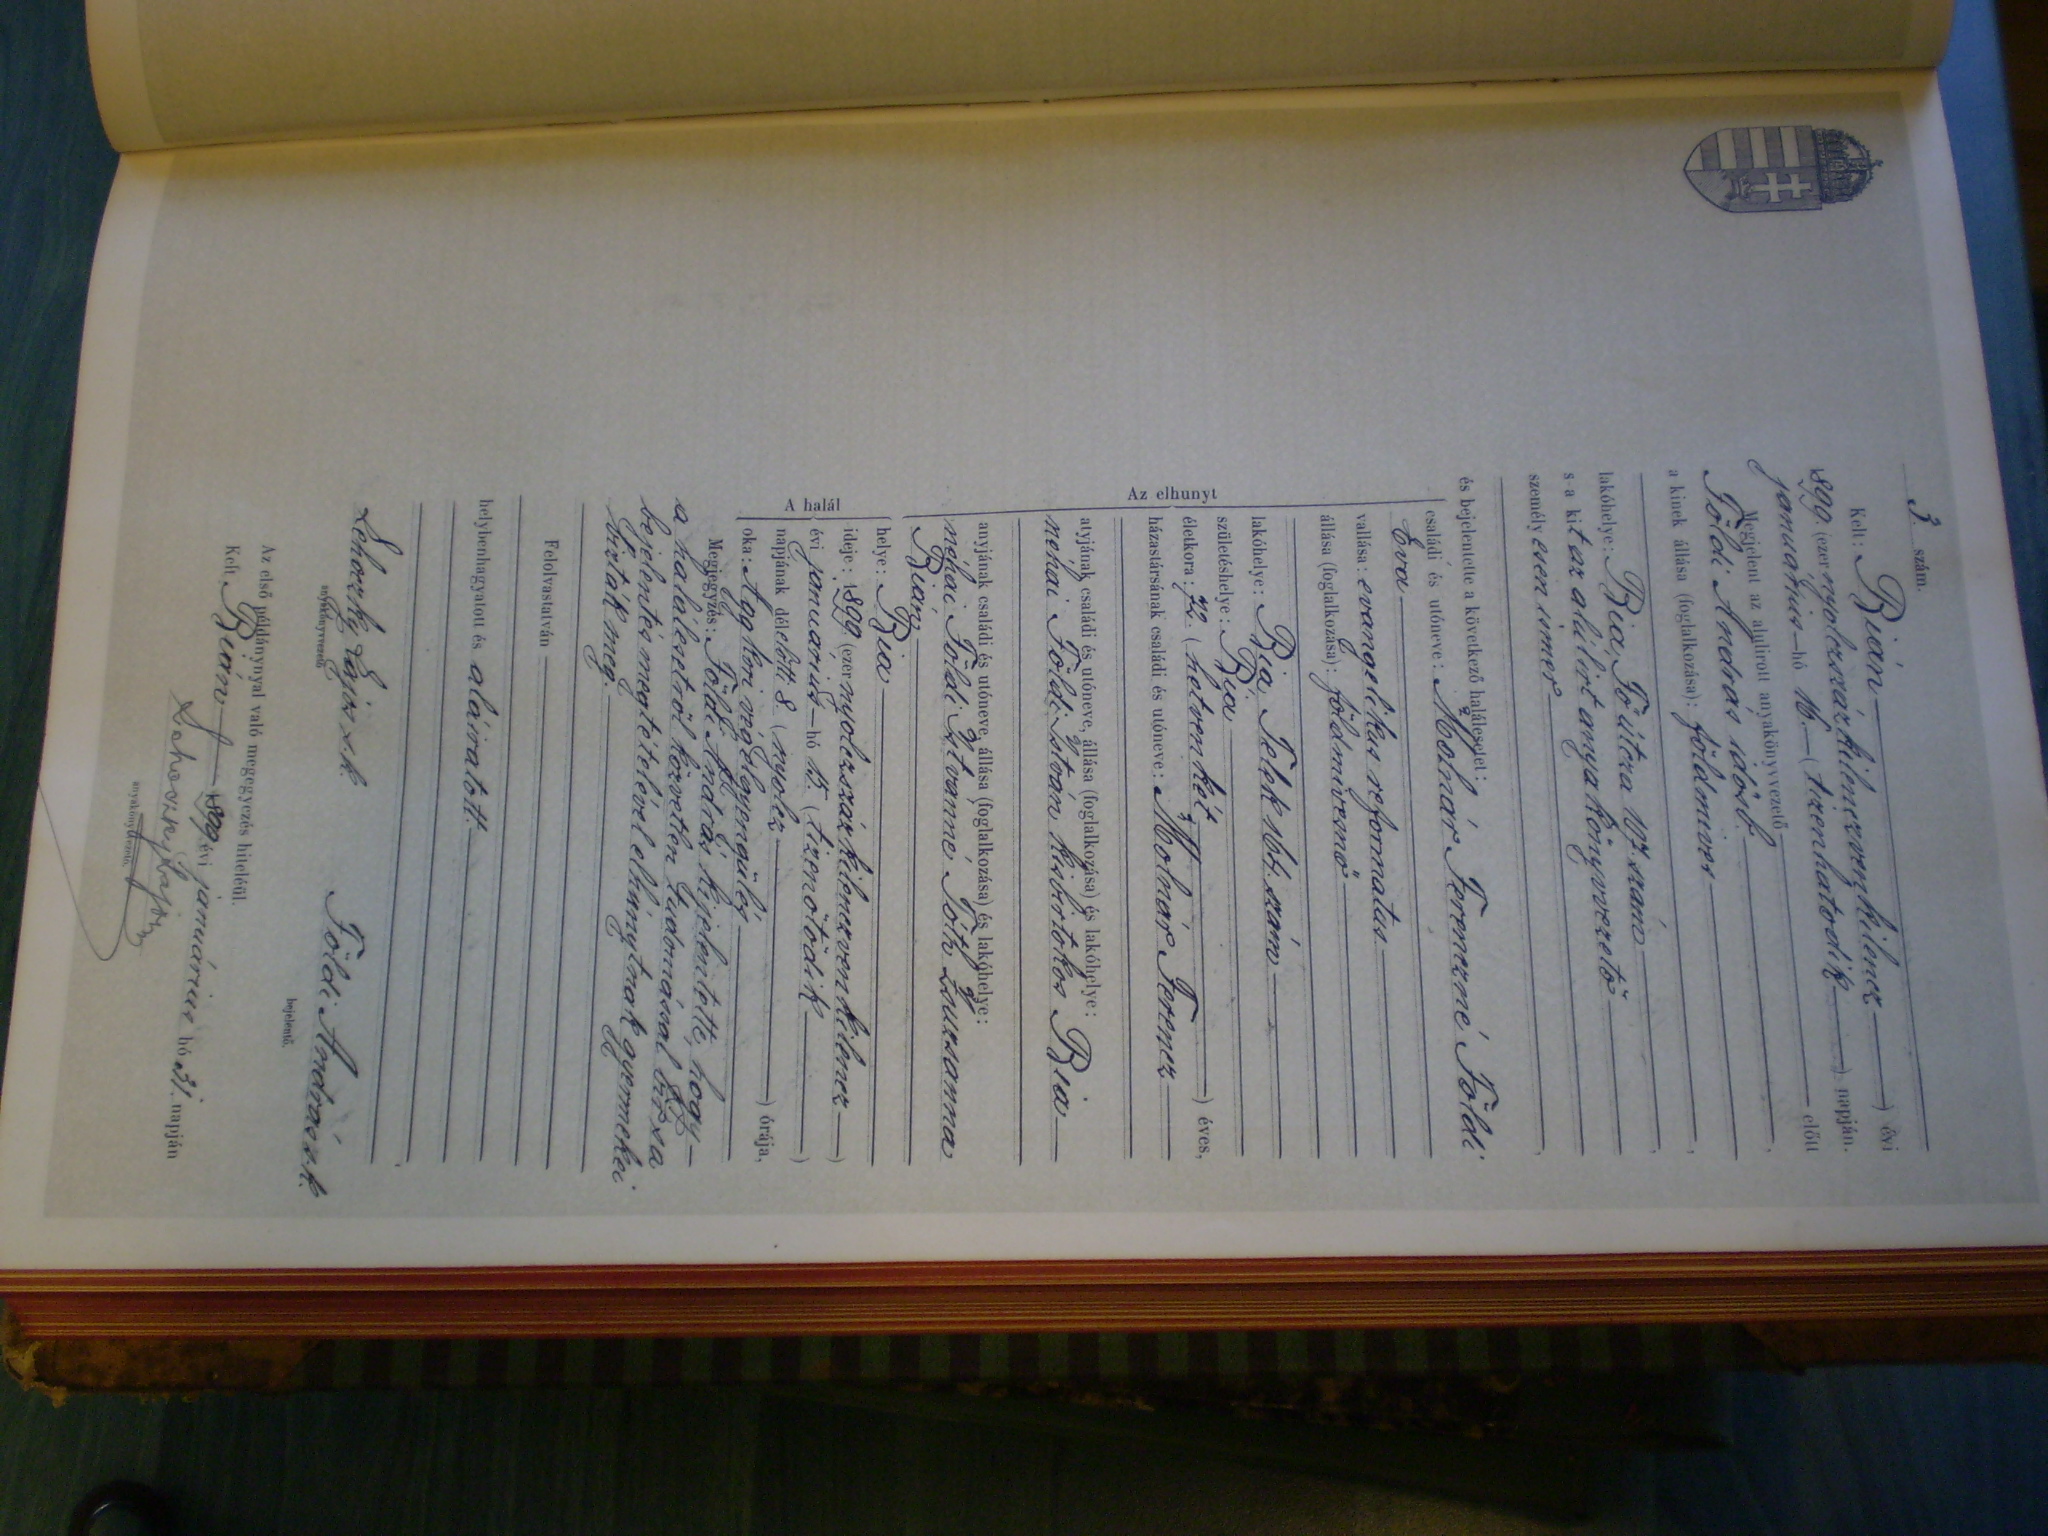 3. szám.
Kelt: Bián — 1899. (ezer nyolczszázkilenczvenkilencz —) évi
januárius — hó 16. — (tizenhatodik —) napján.
Megjelent az alulirott anyakönyvvezető — előtt
Földi András idősb. —,
a kinek állása (foglalkozása): földmives —,
lakóhelye: Bia, Főútcza 107. szám —,
s a kit az alúlirt anyakönyvvezető —
személyesen ismer —,
és bejelentette a következő halálesetet:
Az elhunyt
családi és utóneve: Molnár Ferenczné Földi
Éva —
vallása: evangelikus reformatus —
állása (foglalkozása): földmivesnő —
lakóhelye: Bia Telek 164. szám —
születéshelye: Bia —
életkora: 72. (hetvenkét —) éves,
házastársának családi és utóneve: Molnár Ferencz —
atyjának családi és utóneve, állása (foglalkozása) és lakóhelye:
néhai Földi István kisbirtokos Bia —
anyjának családi és utóneve, állása (foglalkozása) és lakóhelye:
néhai Földi Istvánné Tóth Zsuzsánna
Bián, —
A halál
helye: Bia —
ideje: 1899. (ezer nyolczszázkilenczvenkilencz —)
évi januárius — hó 15. (tizenötödik —)
napjának délelőtt 8. (nyolcz —) órája,
oka: Aggkori végelgyengülés —
Megjegyzés: Földi András kijelentette, hogy —
a halálesetről közvetlen tudomással bír s a
bejelentés megtételével elhúnytnak gyermekei
bízták meg. —
Felolvastatván —
helybenhagyatott és aláíratott.
Lehoczky Lajos s. k.
anyakönyvvezető
Földi András s. k.
bejelentő.
Az első példánynyal való megegyezés hiteléül.
Kelt Bián — 1899 évi januárius hó 31. napján
Lehoczky Lajos
anyakönyvvezető.